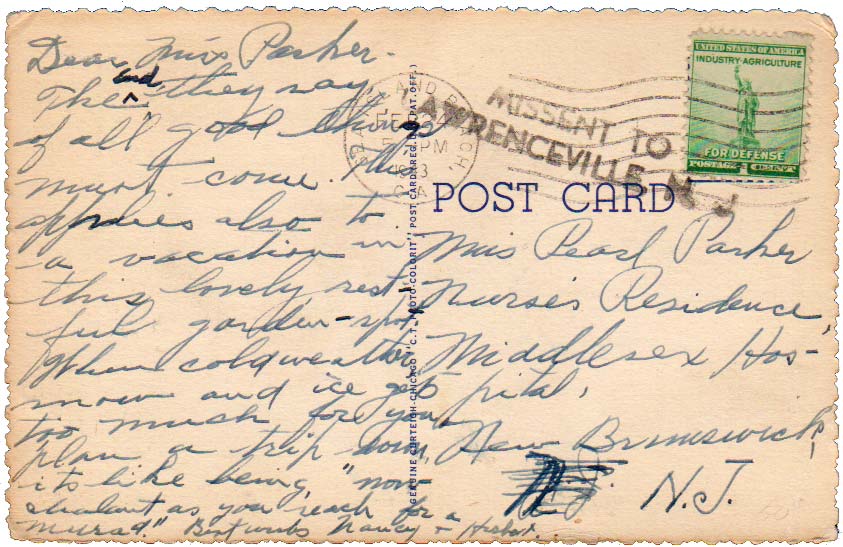 Dear Miss Parker-
The end "they say,
of all good things
must come. This
applies also to
a vacation in
this lovely, rest-
ful garden-spot.
When cold weather,
snow and ice get
too much for you
plan a trip down,
its like being "non-
chalant as you reach for a
Murad." Best wishes Nancy &
MISSENT TO
LAWRENCEVILLE, N. J.
SEA ISLAND BEACH,
FEB 24
PM
GA.
UNITED STATES OF AMERICA
INDUSTRY·AGRICULTURE
FOR DEFENSE
POSTAGE 1 CENT
POST CARD
GENUINE CURTEICH-CHICAGO "C.T. PHOTO-COLORIT" POST CARD (REG. U.S. PAT. OFF.)
Miss Pearl Parker
Nurse's Residence,
Middlesex Hos-
pital,
New Brunswick,
N.J.